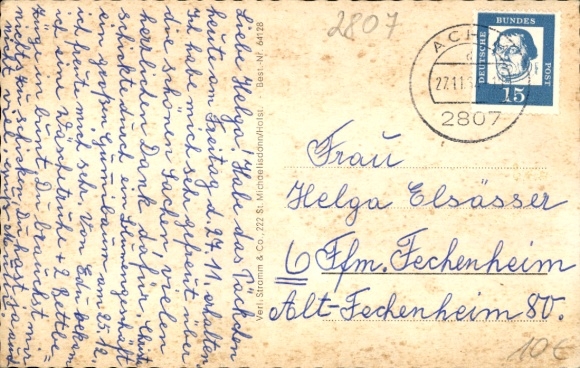 2807
DEUTSCHE
BUNDES
POST
15
ACH
27.11.
2807
Frau
Helga Elsässer
6 Ffm. Fechenheim
Alt-Fechenheim 80.
10€
Verl. Stramm & Co., 222 St. Michaelisdonn/Holst. Best.-Nr. 64128
Liebe Helga! Hab das Päckchen
heute am Freitag d. 27.11. erhalten
Ich habe mich sehr gefreut über
die schönen Sachen, vielen
herzlichen Dank dafür.
schickt durch ein Blumengeschäft
ein großen Gummibaum am 25.12.
ich freute mich sehr. Von Edi bekam
ich eine Wäschetruhe + 2 Bettbe=
züge in bunt. Du brauchst mir
nichts zu schicken Du hast